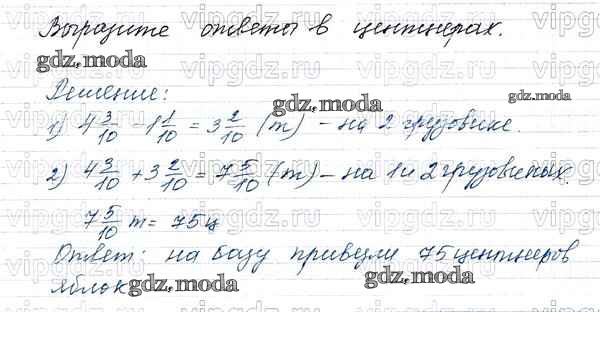 Выразите ответы в центнерах.
gdz.moda
Решение:
gdz.moda
gdz.moda
1) 4 3/10 - 1 1/10 = 3 2/10 (т) - на 2 грузовике.
2) 4 3/10 + 3 2/10 = 7 5/10 (т) - на 1 и 2 грузовиках.
7 5/10 т = 75 ц
Ответ: на базу привезли 75 центнеров
яблок
gdz.moda
gdz.moda
vipgdz.ru vipgdz.ru vipgdz.ru vipgdz.ru